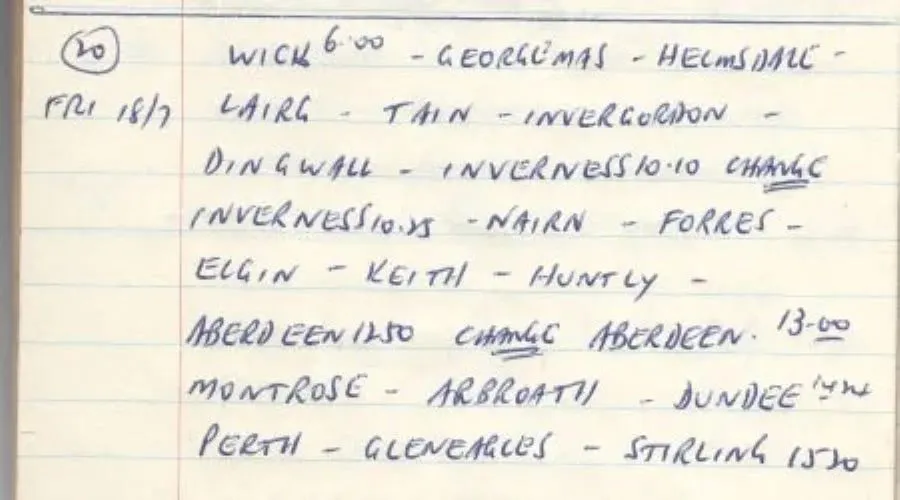 20 WICK 6.00 - GEORGEMAS - HELMSDALE -
FRI 18/7 LAIRG - TAIN - INVERGORDON -
DINGWALL - INVERNESS 10.10 CHANGE
INVERNESS 10.25 - NAIRN - FORRES -
ELGIN - KEITH - HUNTLY -
ABERDEEN 1250 CHANGE ABERDEEN. 13.00
MONTROSE - ARBROATH - DUNDEE
PERTH - GLENEAGLES - STIRLING